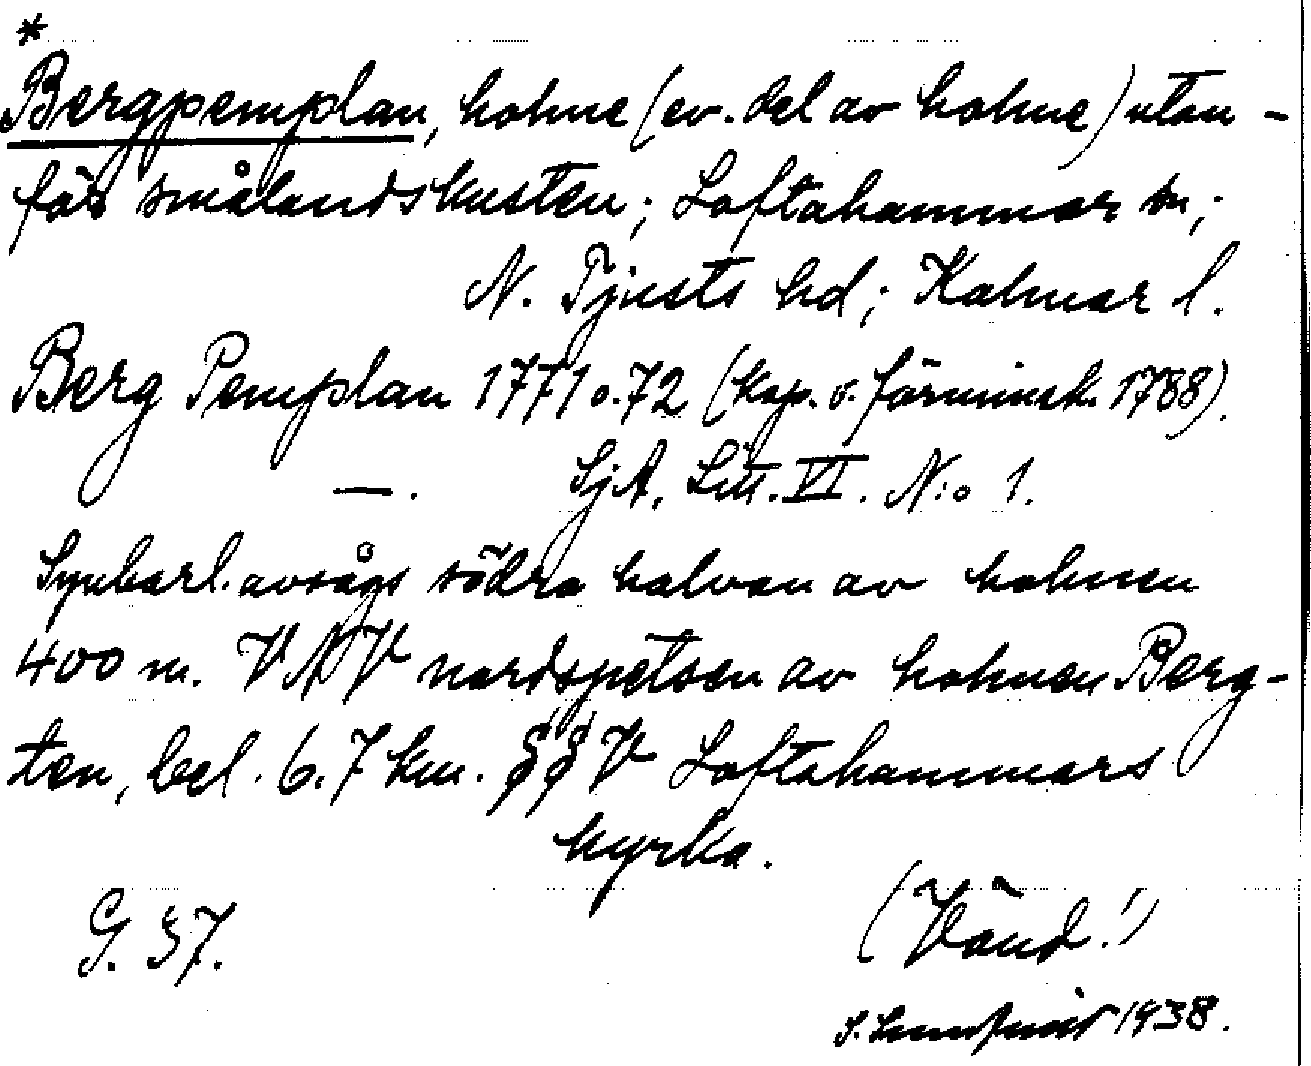 *
Bergpemplan, holme (ev. del av holme) utan-
för smålandskusten; Loftahammar sn;
N. Tjusts hd; Kalmar l.
Berg Pemplan 1771 o. 72 (kop. o. förminsk. 1788).
—. SjA, Litt. VI. N:o 1.
Synbarl. avsågs södra halvan av holmen
400 m. VNV nordspetsen av holmen Berg-
ten, bel. 6.7 km. SSV Loftahammars
kyrka.
G. 37.
(Vänd!)
S. 1938.